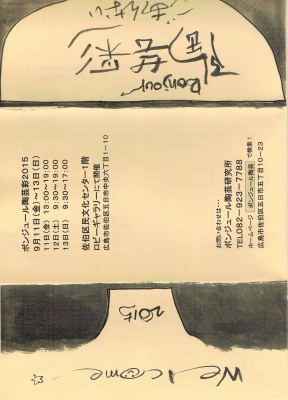 ごあんない
Bonjour
陶芸彩
ボンジュール陶芸彩2015
9月11日(金)～13日(日)
11日(金) 13:00～19:00
12日(土) 9:30～19:00
13日(日) 9:30～17:00
佐伯区民文化センター1階
ロビーギャラリーにて開催
広島市佐伯区五日市中央六丁目1－10
お問い合わせは・・・
ボンジュール陶芸研究所
TEL082－923－7788
ホームページ ボンジュール陶芸 で検索！
広島市佐伯区五日市五丁目10－23
2015
Welcome